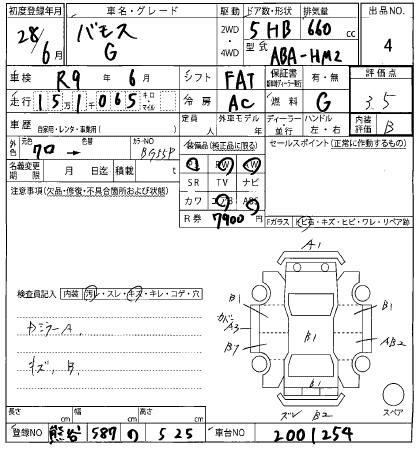 初度登録年月 車名・グレード 駆動 ドア数・形状 排気量 出品NO.
28年 6月 バモス G 2WD 4WD 5HB 660 cc 4
型式 ABA-HM2
車検 R9年 6月 シフト FAT 保証書 有・無 評価点
走行 15万1千065 キロ・マイル 冷房 AC 燃料 G 3.5
車歴 自家用・レンタ・事業用( ) 定員 人 外車モデル 年 ディーラー 並行 ハンドル 左・右 内装評価 B
外色 元色 色替 カラーNO 装備品(純正品に限る) セールスポイント(正常に作動するもの)
70 → BG55P
名義変更期限 月 日迄 積載 t PS PW AW
SR TV ナビ
注意事項(欠品・修復・不具合箇所および状態) カワ エアB ABS
R券 7900円 Fガラス トビ石・キズ・ヒビ・ワレ・リペア跡
A1
検査員記入 内装 汚レ・スレ・キズ・キレ・コゲ・穴
B1 B1
カバー A3 B1
中ミラーA. B7 AB2
キズ, B. B1
ズレ B2 スペア
長さ cm 幅 cm 高さ cm
登録NO 熊谷 587 の 525 車台NO 2001254